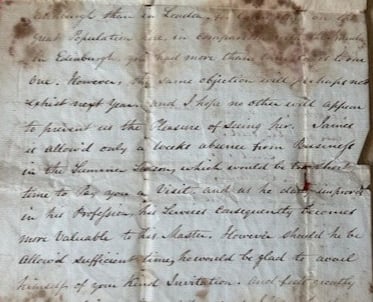 Edinburgh than in London,
Great Population here, in comparison
in Edinburgh, you had more than
one. However, the same objection will perhaps not
exhist next Year, and I hope no other will appear
to prevent us the Pleasure of Seeing her. James
is allow'd only a weeks absence from Business
in the Summer Season, which would be too short
time to Pay you a Visit, and as he does improve
in his Profession, his Services Consequently becomes
more Valuable to his Master. However should he be
Allow'd sufficient time, he would be glad to avail
himself of your Kind Invitation. And feels greatly